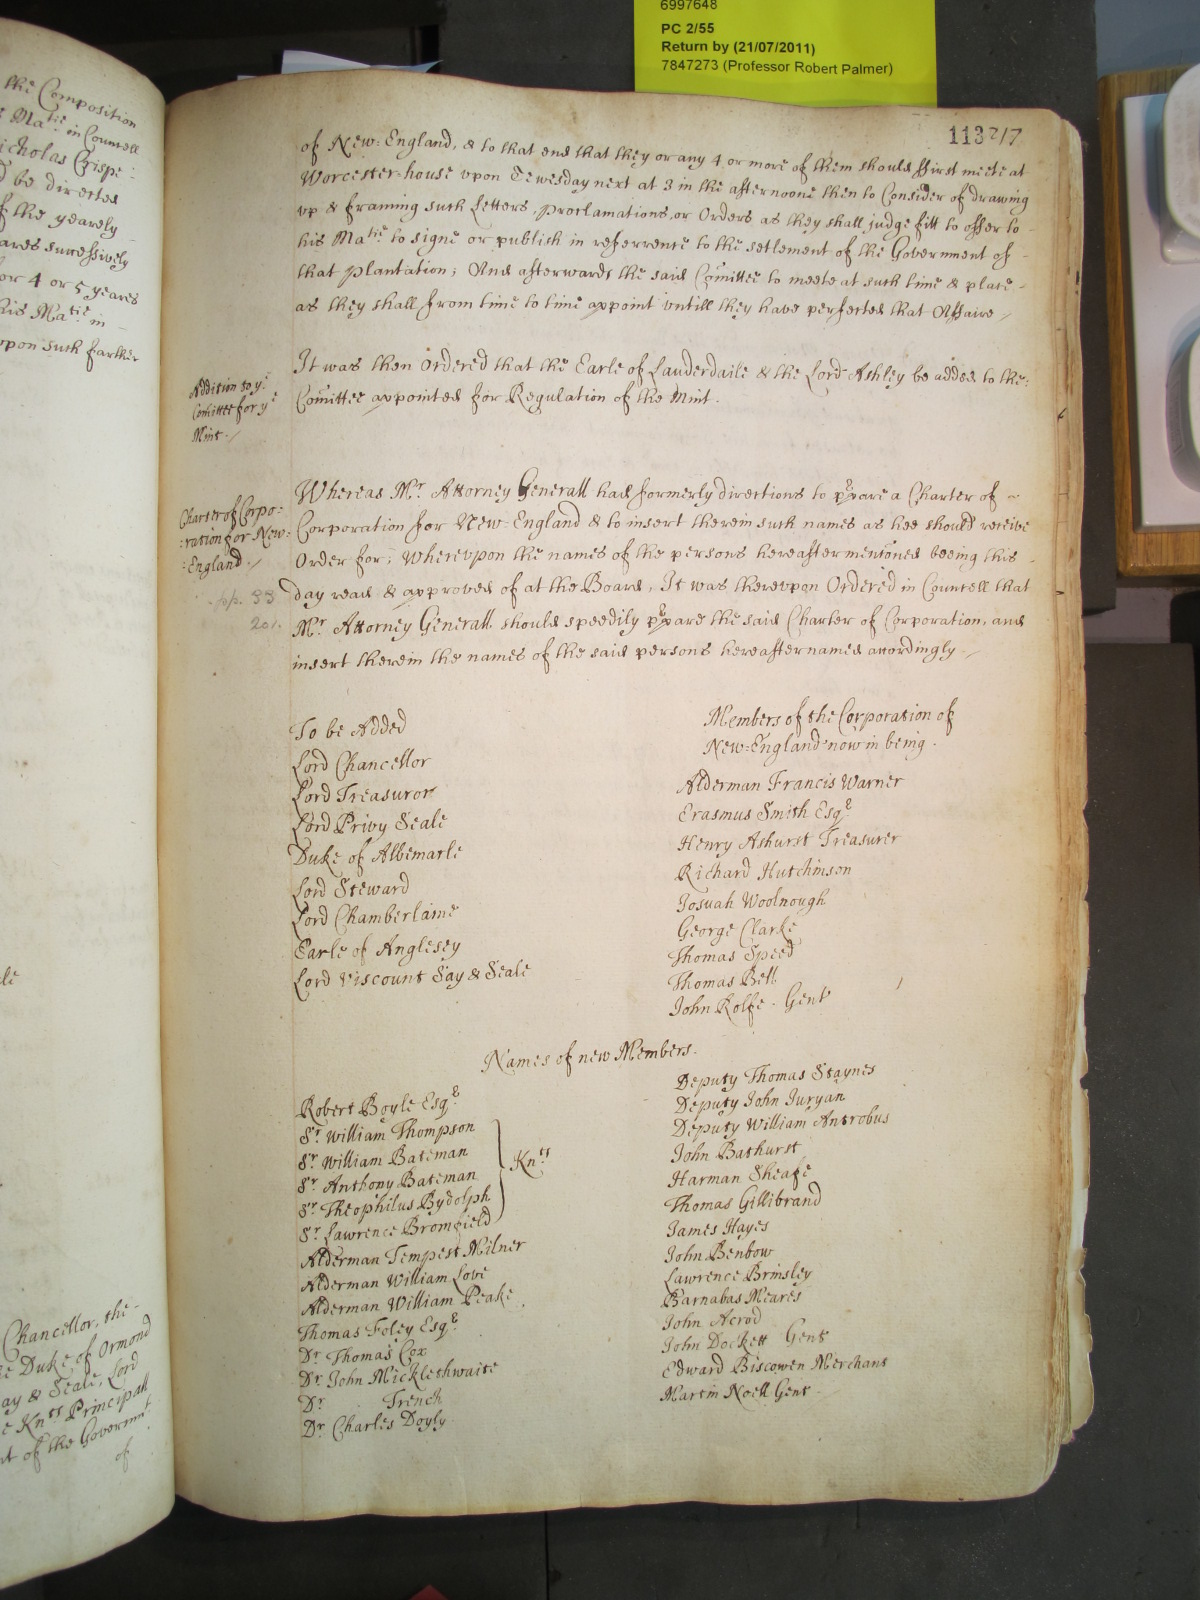 6997648
PC 2/55
Return by (21/07/2011)
7847273 (Professor Robert Palmer)
the Composition
Ma.tie in Councell
icholas Crispe:
be directed
f the yearely
ares successively
or 4 or 5 yeares
his Ma.tie in
vpon such farther
Chancellor, the
e Duke of Ormond
ay & Seale, Lord
e Kn.ts Principall
t of the Governm.t
of
113 217
of New-England, & to that end that they or any 4 or more of them should first meete at
Worcester-house vpon Tewesday next at 3 in the afternoone then to Consider of drawing
vp & framing such Letters, Proclamations, or Orders as they shall judge fitt to offer to
his Ma.tie to signe or publish in referrence to the setlement of the Government of
that Plantation; And afterwards the said Comittee to meete at such time & place
as they shall from time to time appoint vntill they have perfected that Affaire
Addition to y.e
Comittee for y.e
Mint.
It was then Ordered that the Earle of Lauderdaile & the Lord Ashley be added to the
Comittee appointed for Regulation of the Mint.
Charter of Corpo:
:ration for New:
:England.
Whereas M.r Attorney Generall had formerly directions to p̲pare a Charter of
Corporation for New-England & to insert therein such names as hee should receive
Order for; Wherevpon the names of the persons hereafter mentioned beeing this
day read & approved of at the Board, It was therevpon Ordered in Councell that
M.r Attorney Generall should speedily p̲pare the said Charter of Corporation, and
insert therein the names of the said persons hereafter named accordingly
To be Added
Lord Chancellor
Lord Treasuror
Lord Privy Seale
Duke of Albemarle
Lord Steward
Lord Chamberlaine
Earle of Anglesey
Lord Viscount Say & Seale
Members of the Corporation of
New-England now in being.
Alderman Francis Warner
Erasmus Smith Esq.r
Henry Ashurst Treasurer
Richard Hutchinson
Josuah Woolnough
George Clarke
Thomas Speed
Thomas Bell
John Rolfe. Gent
Names of new Members.
Robert Boyle Esq.r
S.r William Thompson
S.r William Bateman
S.r Anthony Bateman
S.r Theophilus Bydolph
S.r Lawrence Bromfield
Kn.ts
Alderman Tempest Milner
Alderman William Love
Alderman William Peake
Thomas Foley Esq.r
D.r Thomas Cox
D.r John Micklethwaite
D.r Trench
D.r Charles Doyly
Deputy Thomas Staynes
Deputy John Juryan
Deputy William Antrobus
John Bathurst
Harman Sheafe
Thomas Gillibrand
James Hayes
John Benbow
Lawrence Brinsley
Barnabas Meares
John Acrod
John Dockett Gent
Edward Biscowen Merchant
Martin Noell Gent